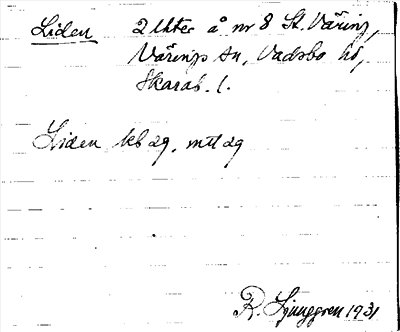 Liden 2 lhter å nr 8 St. Väring,
Värings sn, Vadsbo hd,
Skarab. l.
Liden kb dg, mtl dg
R. Ljunggren 1931